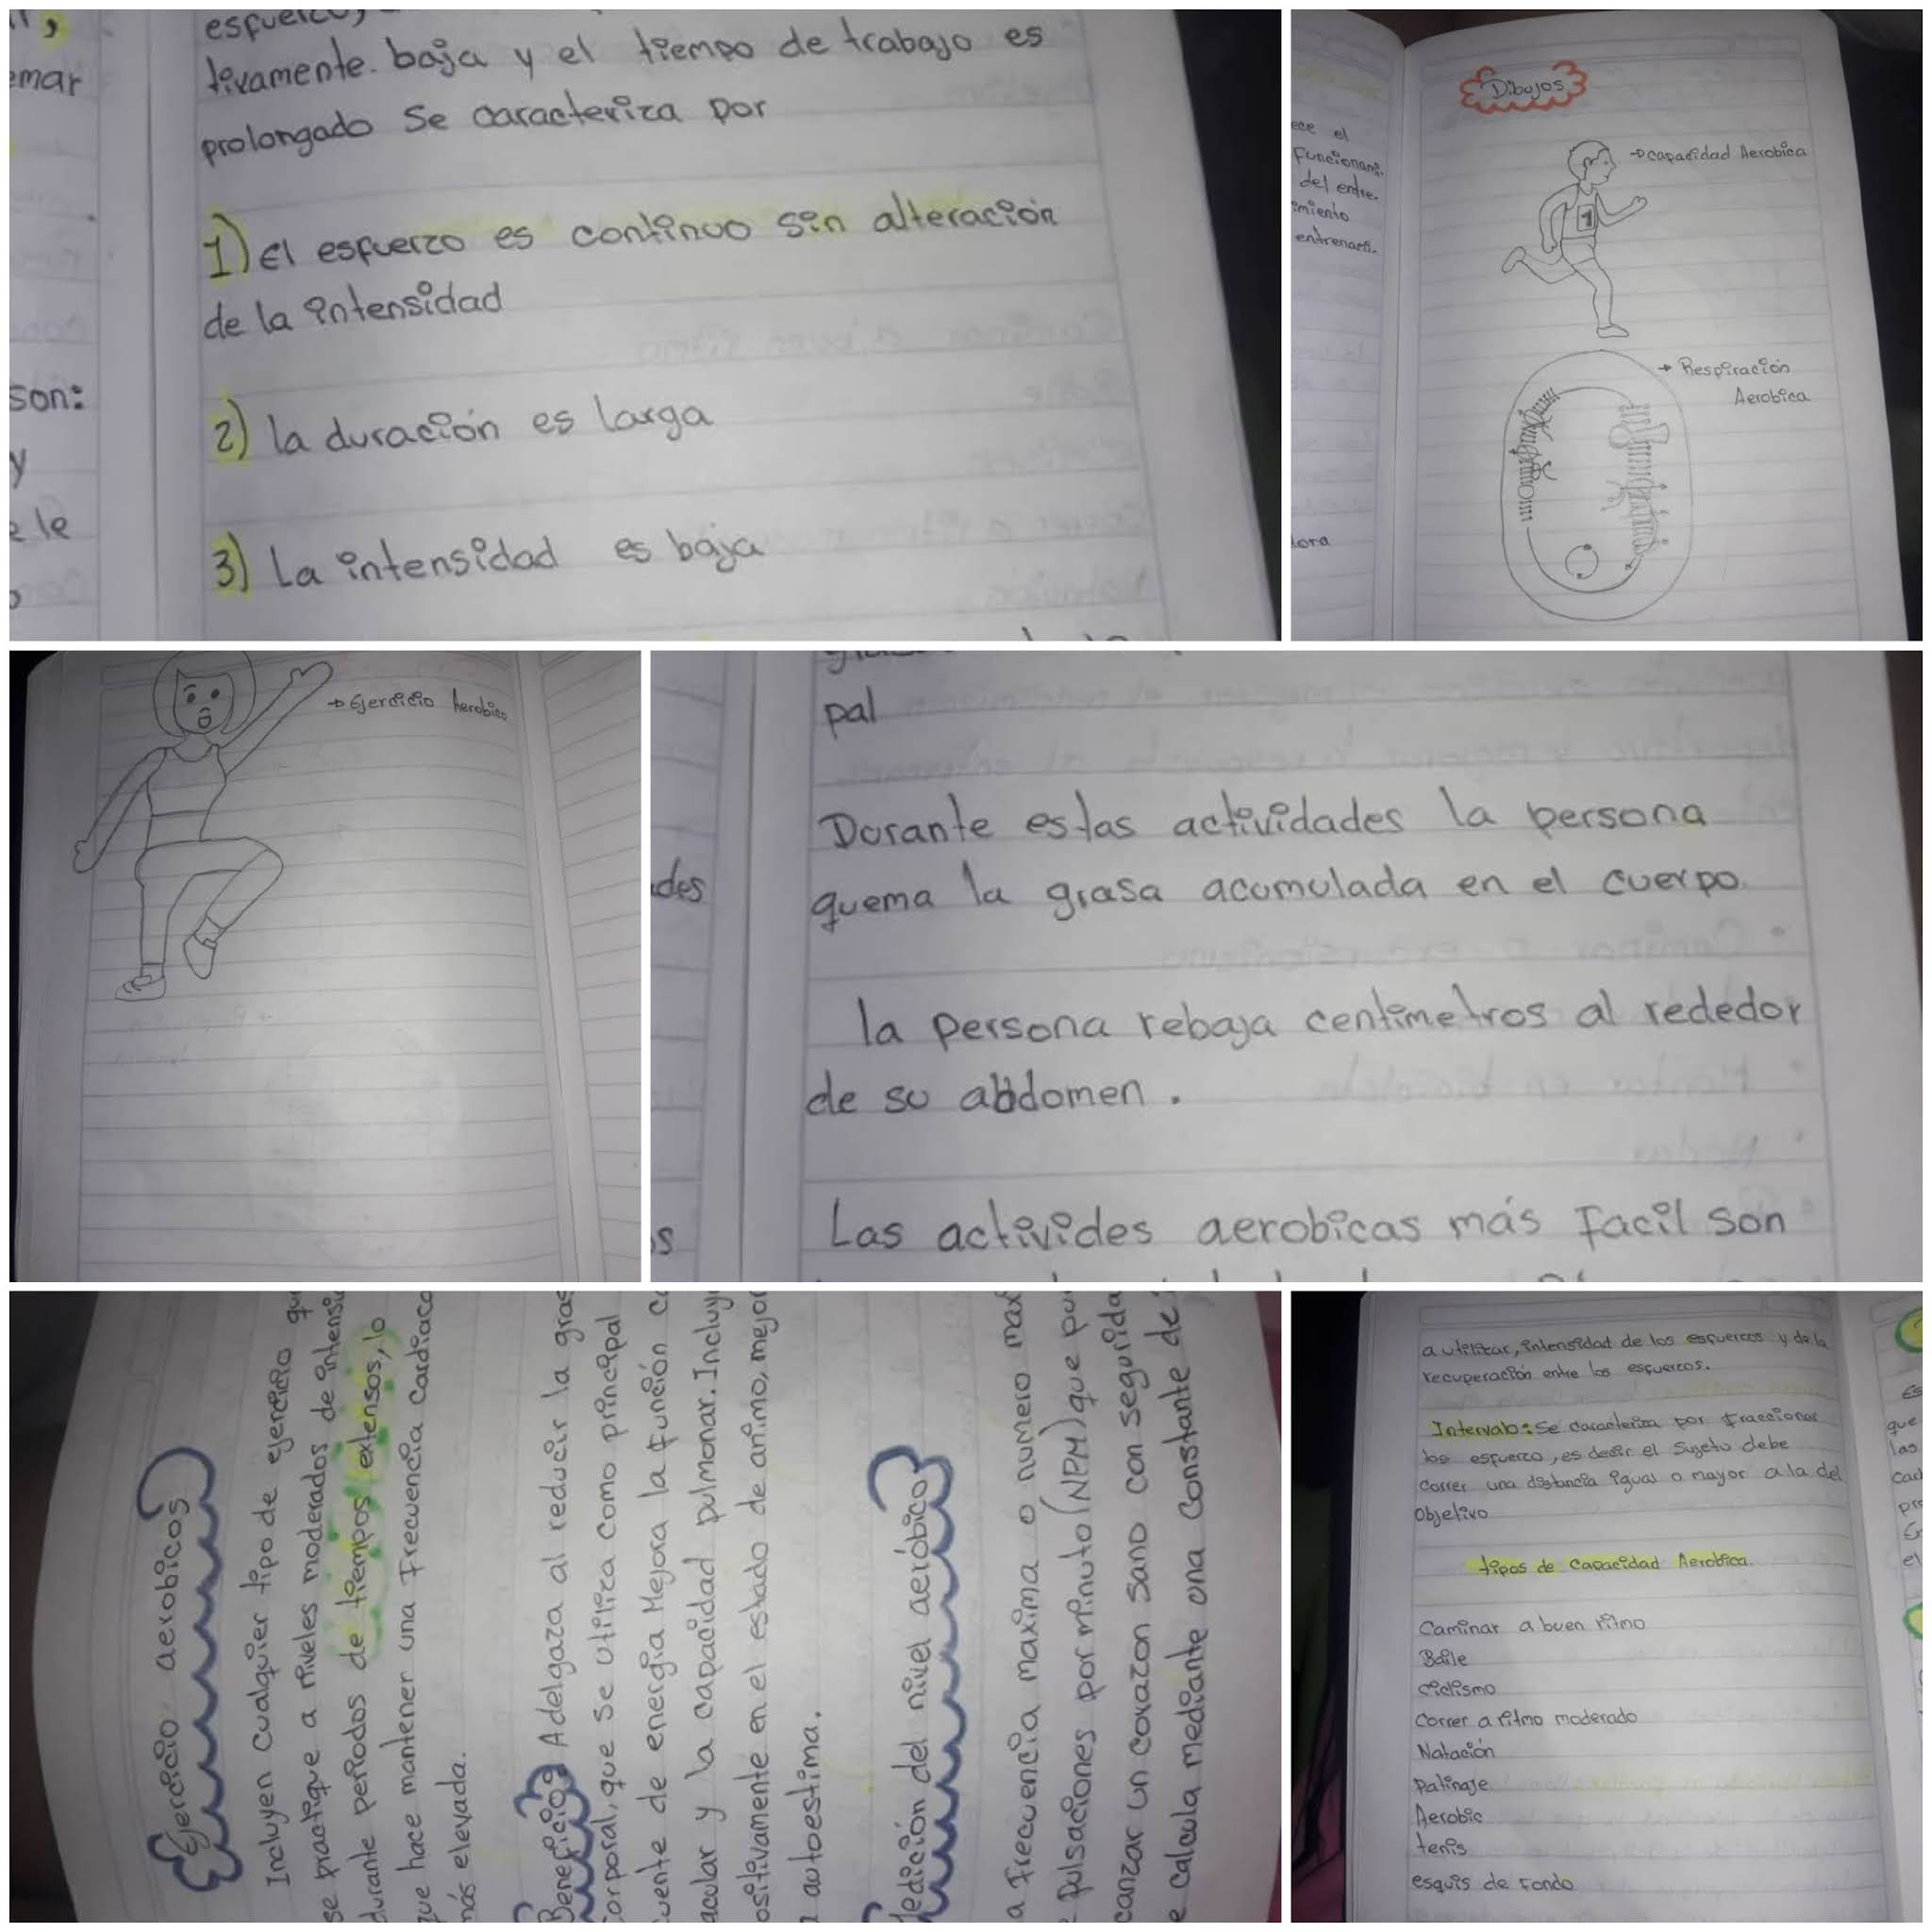 mar
son:
y
le
tivamente. baja y el tiempo de trabajo es
prolongado Se caracteriza por
1) El esfuerzo es continuo sin alteración
de la intensidad
2) la duración es larga
3) La intensidad es baja
Dibujos
→ capacidad Aerobica
1
→ Respiración
Aerobica
el
Funcionam.
del entre.
imiento
entrenami.
→ Ejercicio Aerobico
pal
des
Durante estas actividades la persona
quema la grasa acumulada en el cuerpo.
la persona rebaja centimetros al rededor
de su abdomen.
s
Las activides aerobicas más facil son
Ejercicio aerobicos
Incluyen cualquier tipo de ejercicio qu
se practique a niveles moderados de intensi
durante periodos de tiempos extensos, lo
que hace mantener una Frecuencia cardiaca
más elevada.
Beneficios Adelgaza al reducir la gras
corporal, que se utiliza como principal
uente de energia Mejora la función c
acular y la capacidad pulmonar. Incluy
ositivamente en el estado de animo, mejor
a autoestima.
edición del nivel aeróbico
a frecuencia maxima o numero max
e pulsaciones por minuto (NPM) que pu
canzar un corazon sano con segurida
e calcula mediante una constante de
a utilizar, intensidad de los esfuerzos y de la
recuperación entre los esfuerzos.
Intervalo: Se caracteriza por fraccionar
los esfuerzo, es decir el sujeto debe
correr una distancia igual o mayor a la del
Objetivo
tipos de Capacidad Aerobica.
Caminar a buen ritmo
Baile
ciclismo
Correr a ritmo moderado
Natación
Patinaje
Aerobic
tenis
esquis de Fondo
Es
que
las